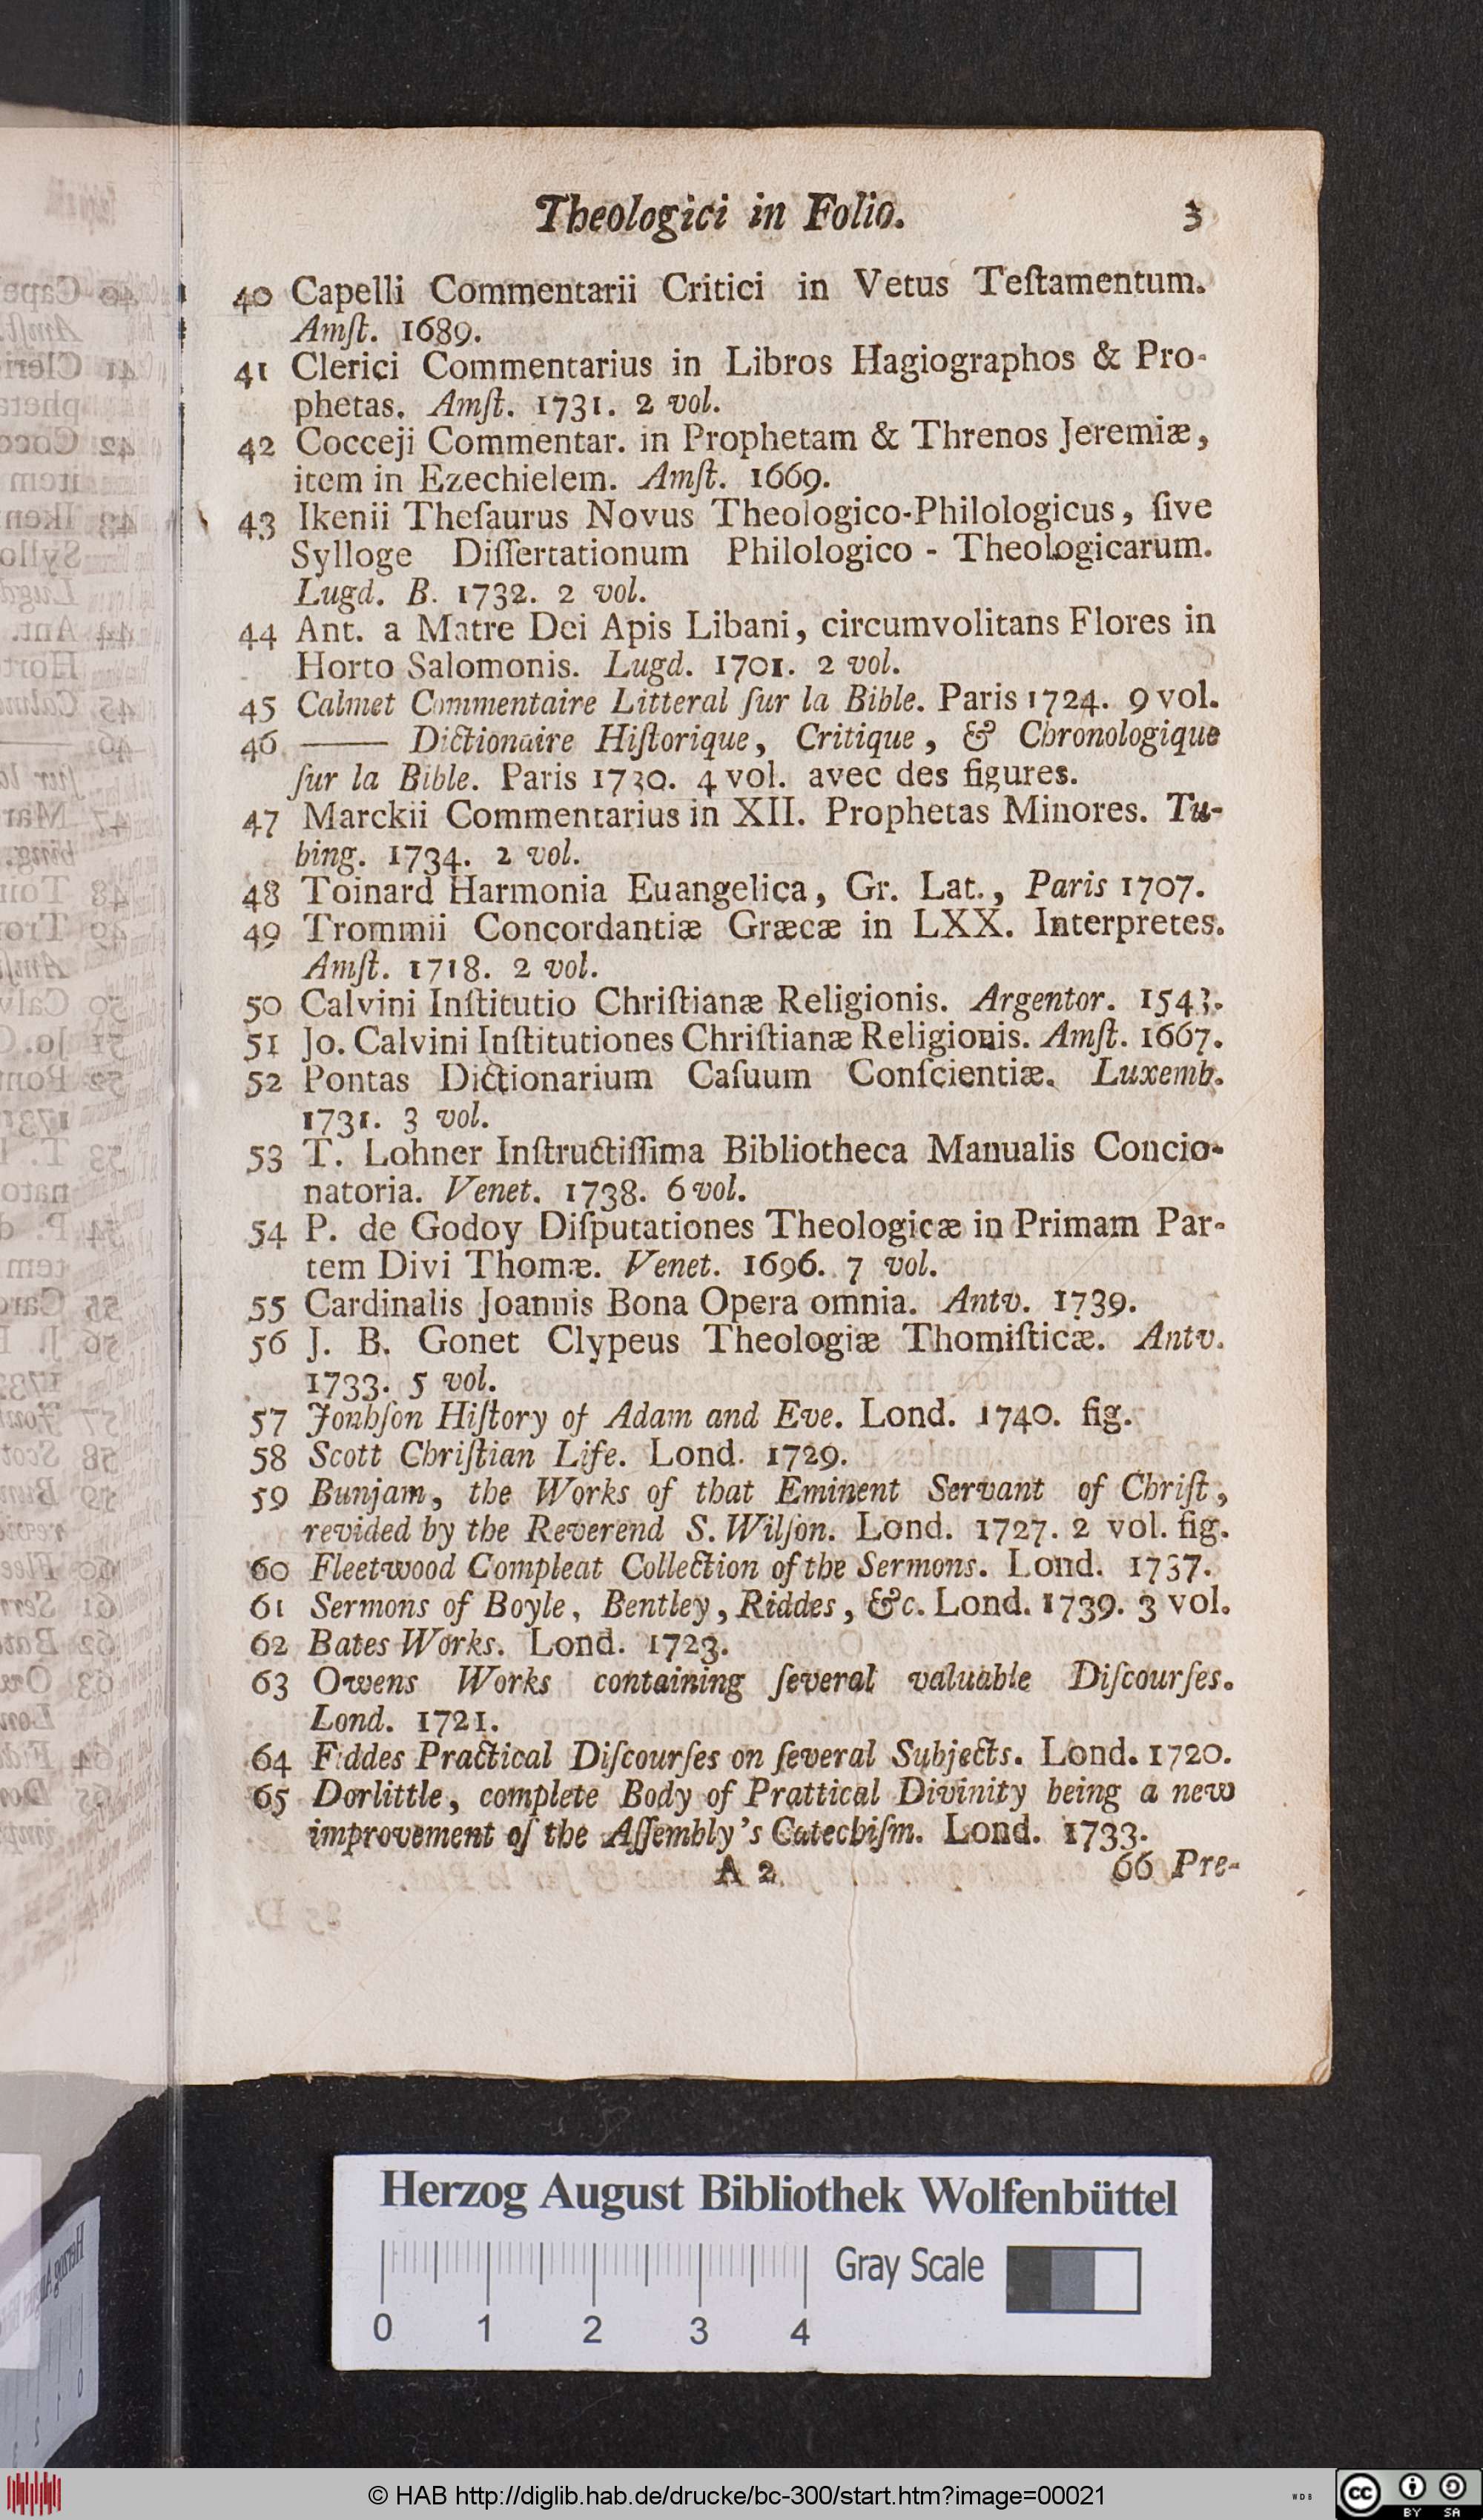 Theologici in Folio. 3
40 Capelli Commentarii Critici in Vetus Teſtamentum.
Amſt. 1689.
41 Clerici Commentarius in Libros Hagiographos & Pro-
phetas. Amſt. 1731. 2 vol.
42 Cocceji Commentar. in Prophetam & Threnos Jeremiæ,
item in Ezechielem. Amſt. 1669.
43 Ikenii Theſaurus Novus Theologico-Philologicus, ſive
Sylloge Diſſertationum Philologico - Theologicarum.
Lugd. B. 1732. 2 vol.
44 Ant. a Matre Dei Apis Libani, circumvolitans Flores in
Horto Salomonis. Lugd. 1701. 2 vol.
45 Calmet Commentaire Litteral ſur la Bible. Paris 1724. 9 vol.
46 —— Dictionaire Hiſtorique, Critique, & Chronologique
ſur la Bible. Paris 1730. 4 vol. avec des figures.
47 Marckii Commentarius in XII. Prophetas Minores. Tu-
bing. 1734. 2 vol.
48 Toinard Harmonia Euangelica, Gr. Lat., Paris 1707.
49 Trommii Concordantiæ Græcæ in LXX. Interpretes.
Amſt. 1718. 2 vol.
50 Calvini Inſtitutio Chriſtianæ Religionis. Argentor. 1543.
51 Jo. Calvini Inſtitutiones Chriſtianæ Religionis. Amſt. 1667.
52 Pontas Dictionarium Caſuum Conſcientiæ. Luxemb.
1731. 3 vol.
53 T. Lohner Inſtructiſſima Bibliotheca Manualis Concio-
natoria. Venet. 1738. 6 vol.
54 P. de Godoy Diſputationes Theologicæ in Primam Par-
tem Divi Thomæ. Venet. 1696. 7 vol.
55 Cardinalis Joannis Bona Opera omnia. Antv. 1739.
56 J. B. Gonet Clypeus Theologiæ Thomiſticæ. Antv.
1733. 5 vol.
57 Jonhſon Hiſtory of Adam and Eve. Lond. 1740. fig.
58 Scott Chriſtian Life. Lond. 1729.
59 Bunjam, the Works of that Eminent Servant of Chriſt,
revided by the Reverend S. Wilſon. Lond. 1727. 2 vol. fig.
60 Fleetwood Compleat Collection of the Sermons. Lond. 1737.
61 Sermons of Boyle, Bentley, Riddes, &c. Lond. 1739. 3 vol.
62 Bates Works. Lond. 1723.
63 Owens Works containing ſeveral valuable Diſcourſes.
Lond. 1721.
64 Fiddes Practical Diſcourſes on ſeveral Subjects. Lond. 1720.
65 Dorlittle, complete Body of Prattical Divinity being a new
improvement oſ the Aſſembly's Catechiſm. Lond. 1733.
A 2 66 Pre-
Herzog August Bibliothek Wolfenbüttel
Gray Scale
0 1 2 3 4
© HAB http://diglib.hab.de/drucke/bc-300/start.htm?image=00021
WDB
cc BY SA